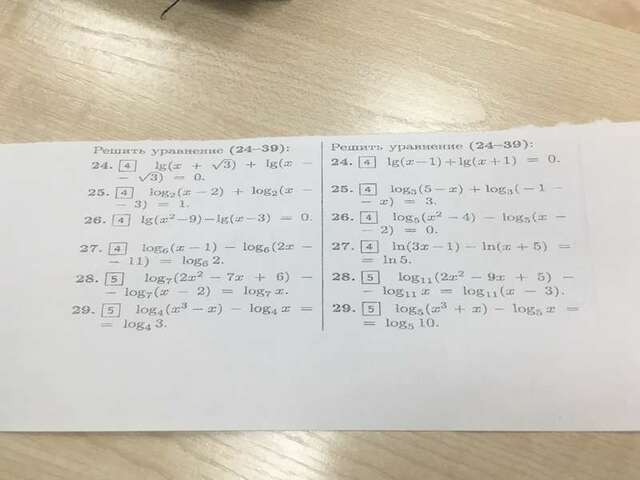 Решить уравнение (24–39):
24. 4 lg(x + √3) + lg(x −
− √3) = 0.
25. 4 log₂(x − 2) + log₂(x −
− 3) = 1.
26. 4 lg(x² − 9) − lg(x − 3) = 0.
27. 4 log₆(x − 1) − log₆(2x −
− 11) = log₆ 2.
28. 5 log₇(2x² − 7x + 6) −
− log₇(x − 2) = log₇ x.
29. 5 log₄(x³ − x) − log₄ x =
= log₄ 3.
Решить уравнение (24–39):
24. 4 lg(x − 1) + lg(x + 1) = 0.
25. 4 log₃(5 − x) + log₃(−1 −
− x) = 3.
26. 4 log₅(x² − 4) − log₅(x −
− 2) = 0.
27. 4 ln(3x − 1) − ln(x + 5) =
= ln 5.
28. 5 log₁₁(2x² − 9x + 5) −
− log₁₁ x = log₁₁(x − 3).
29. 5 log₅(x³ + x) − log₅ x =
= log₅ 10.